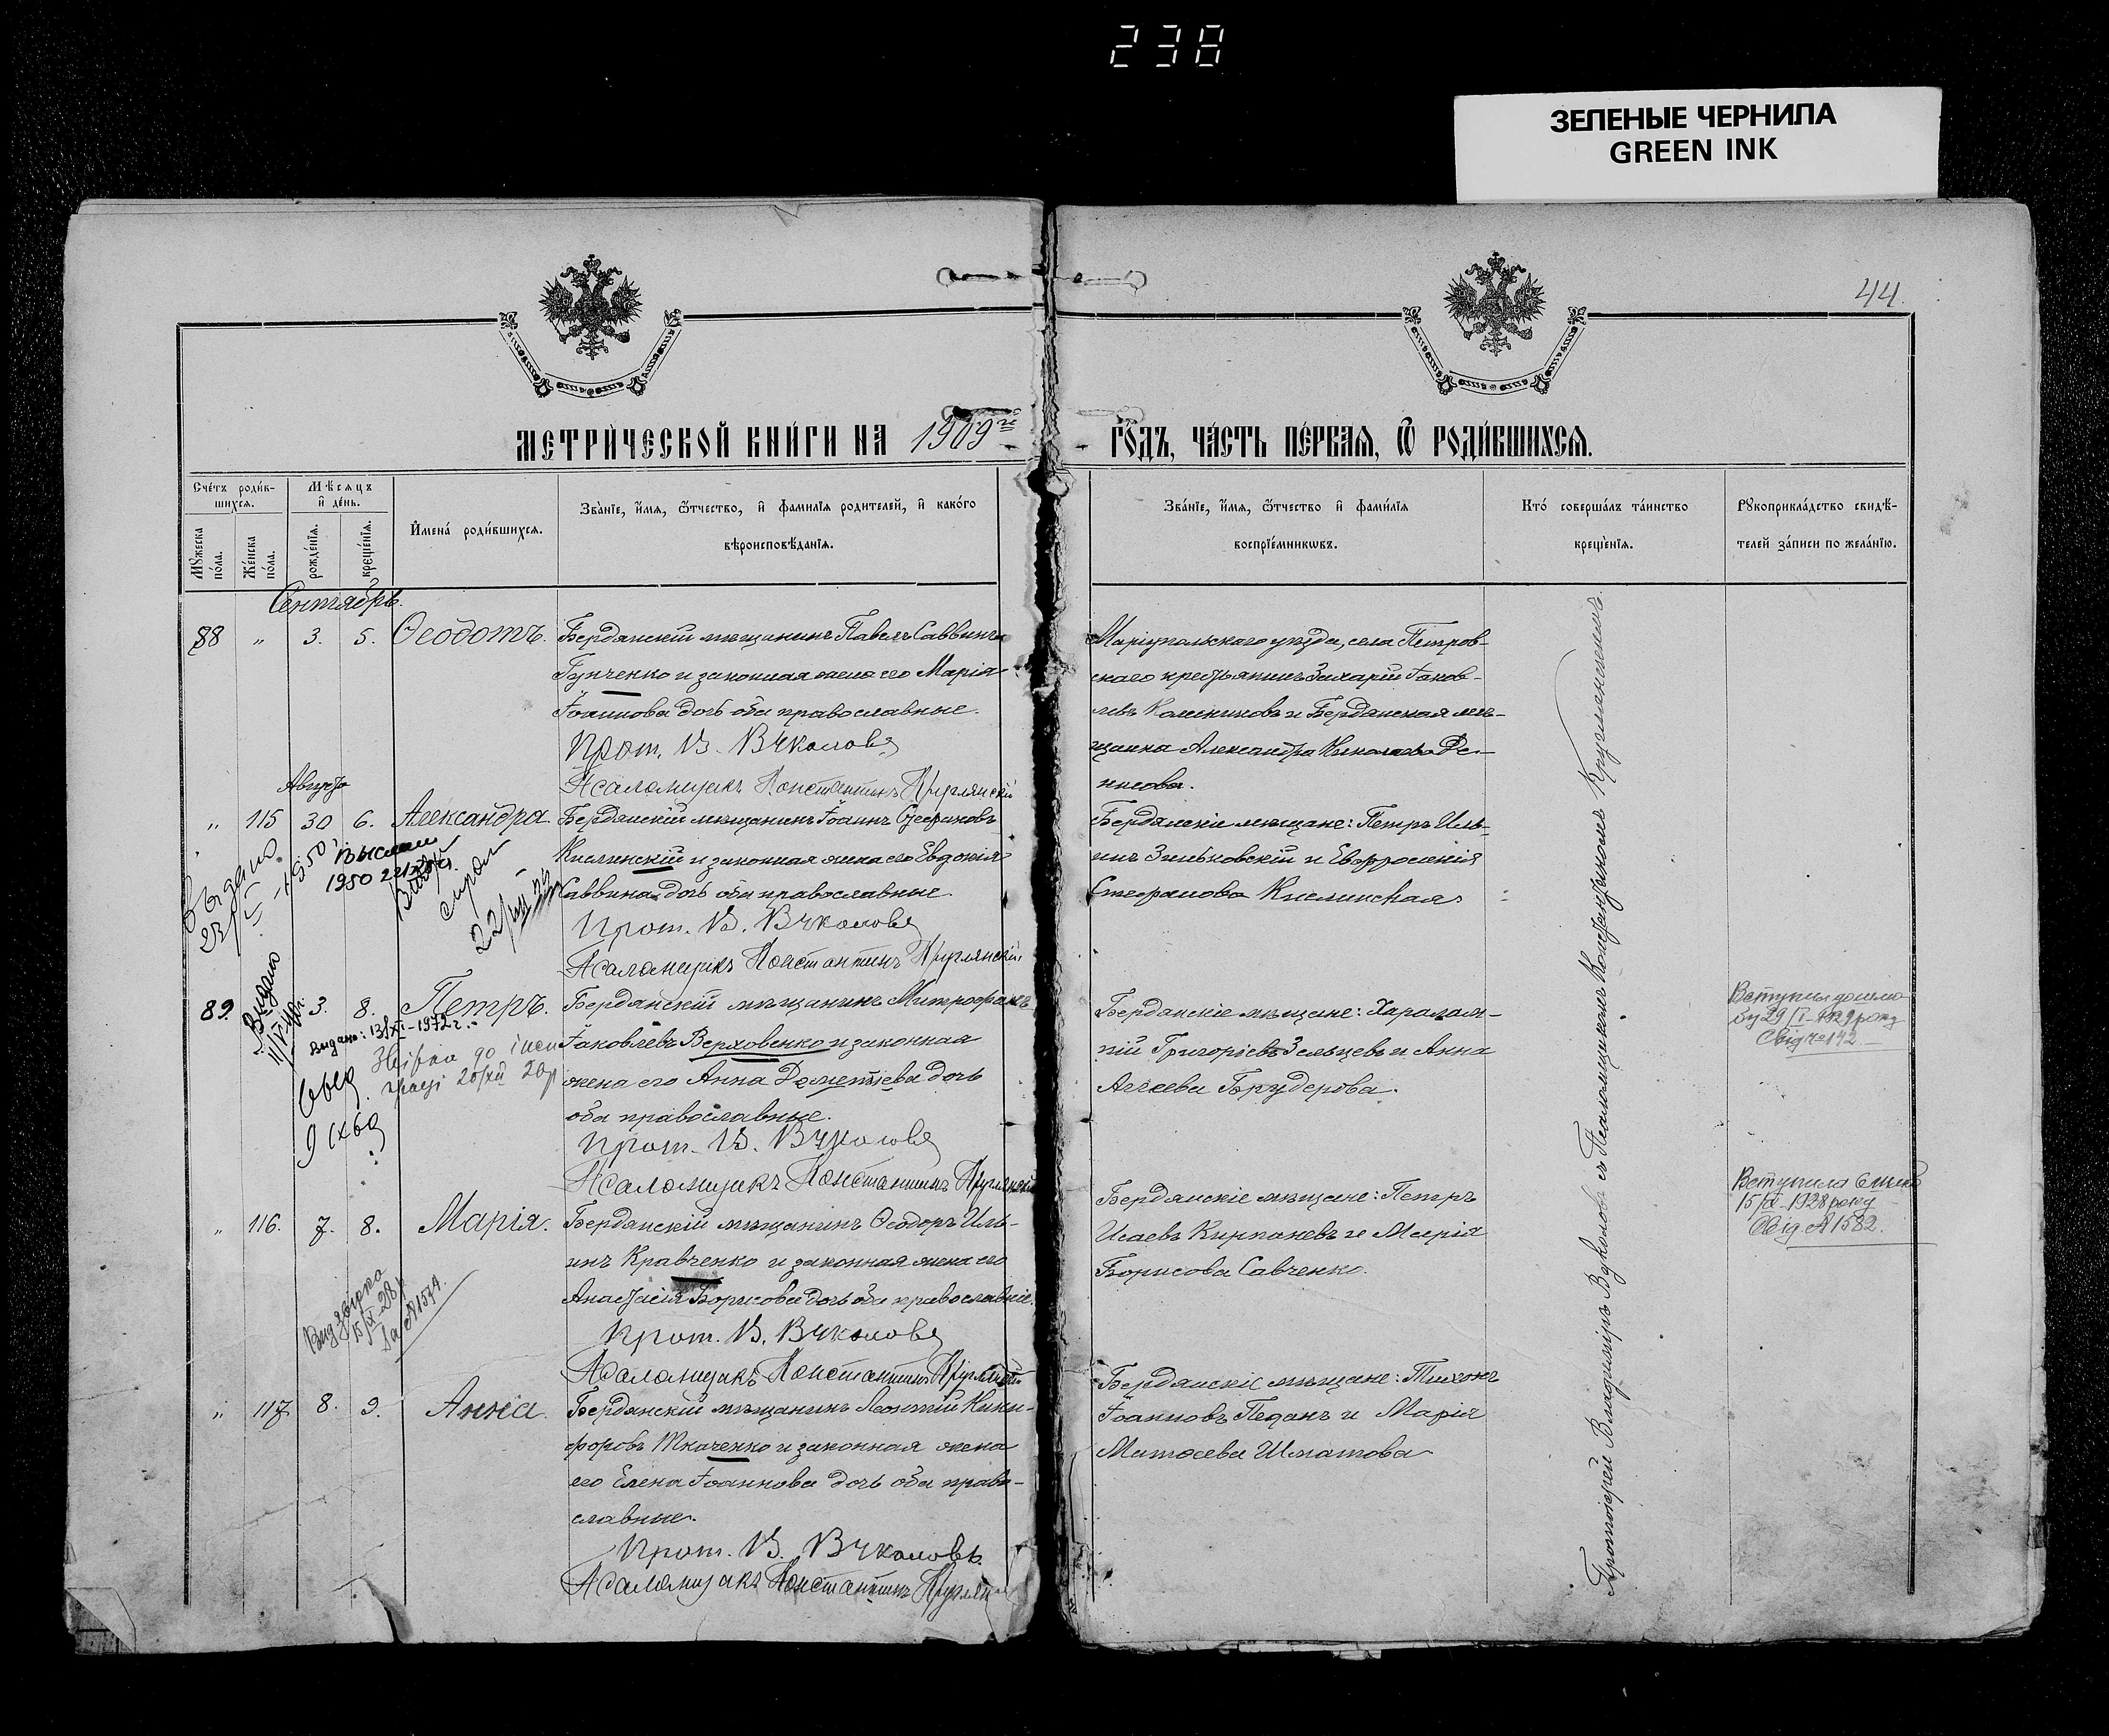 238
ЗЕЛЕНЫЕ ЧЕРНИЛА
GREEN INK
44
МЕТРИ́ЧЕСКОЙ КНИ́ГИ НА 1909 го
ГО́ДЪ, ЧА́СТЬ ПЕ́РВАѦ, Ѿ РОДИ́ВШИХСѦ.
Сче́тъ роди́в-
шихсѧ.
Мѣ́сѧцъ
и҆ де́нь.
Мꙋ́жеска
по́ла.
Же́нска
по́ла.
рожде́нїѧ.
креще́нїѧ.
И҆мена́ роди́вшихсѧ.
Зва́нїе, и҆́мѧ, ѻ҆́тчество, и҆ фами́лїѧ роди́телей, и҆ како́гѡ
вѣроисповѣ́данїѧ.
Зва́нїе, и҆́мѧ, ѻ҆́тчество и҆ фами́лїѧ
воспрїе́мникѡвъ.
Кто̀ соверша́лъ та́инство
креще́нїѧ.
Рꙋкоприкла́дство свидѣ́-
телей за́писи по жела́нїю.
Сентябрь.
88 " 3. 5. Ѳеодотъ. Бердянскій мѣщанинъ Павелъ Саввинъ
Гупченко и законная жена его Марія
Іоаннова дочь оба православные.
Прот. В. Вуколовъ
Псаломщикъ Константинъ Круглянскій
Маріупольскаго уѣзда, села Петров-
скаго крестьянинъ Захарій Іаков-
левъ Колесниковъ и Бердянская мѣ-
щанка Александра Николаева Де-
нисова.
Августъ
" 115 30 6. Александра. Бердянскій мѣщанинъ Іоаннъ Стефановъ
Кислинскій и законная жена его Евдокія
Саввина дочь оба православные.
Прот. В. Вуколовъ
Псаломщикъ Константинъ Круглянскій
Бердянскіе мѣщане: Петръ Иль-
инъ Зиньковскій и Евфросинія
Стефанова Кислинская
Выдано
1950
89. 3. 8. Петръ. Бердянскій мѣщанинъ Митрофанъ
Іаковлевъ Верховенко и законная
жена его Анна Дометіева дочь
оба православные.
Прот. В. Вуколовъ
Псаломщикъ Константинъ Круглянскій
Бердянскіе мѣщане: Харалам-
пій Григоріевъ Зельцевъ и Анна
Аггеева Брудерова.
Выдано
Выдано: 13/XI-1972г.
29/I-1929 року
Свід № 192
" 116. 7. 8. Марія. Бердянскій мѣщанинъ Ѳеодоръ Иль-
инъ Кравченко и законная жена его
Анастасія Борисова дочь оба православные.
Прот. В. Вуколовъ
Псаломщикъ Константинъ Круглянскій
Бердянскіе мѣщане: Петръ
Исаевъ Кирпаневъ и Марія
Борисова Савченко.
Вступила
15/IX-1928 року
Свід. № 1582.
" 117 8. 9. Анна. Бердянскій мѣщанинъ Леонтій Ники-
форовъ Ткаченко и законная жена
его Елена Іоаннова дочь оба право-
славные.
Прот. В. Вуколовъ.
Псаломщикъ Константинъ Круглянскій
Бердянскіе мѣщане: Тихонъ
Іоанновъ Педанъ и Марія
Матѳеева Шматова
Протоіерей Владиміръ Вуколовъ съ Псаломщикомъ Константиномъ Круглянскимъ.